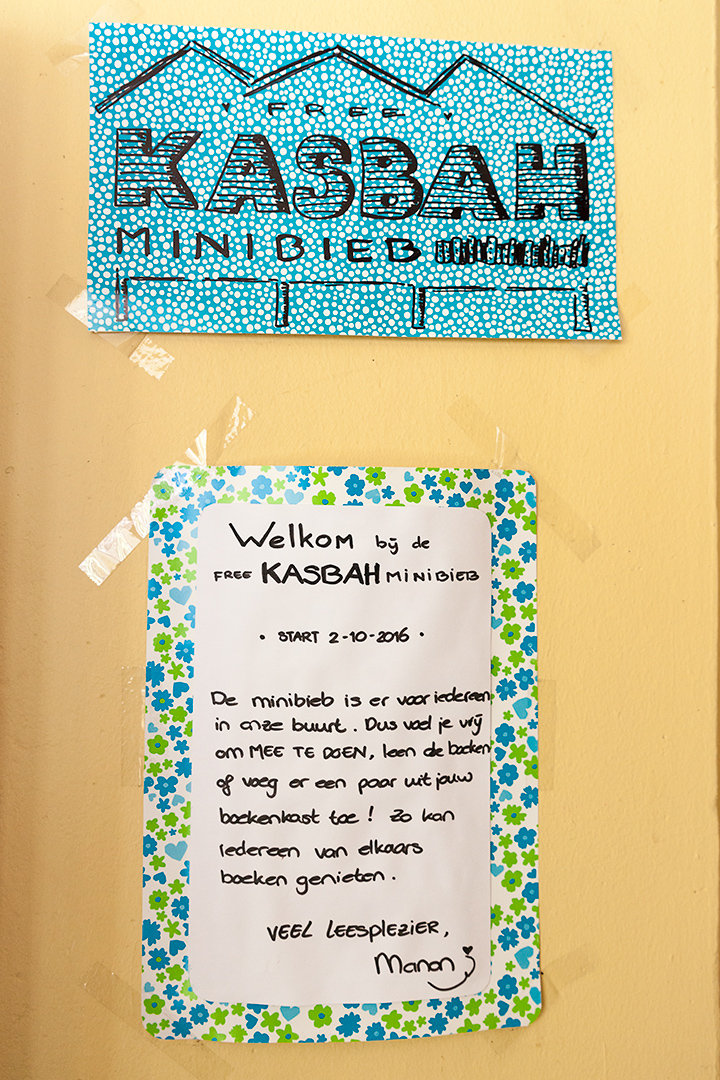 FREE
KASBAH
MINIBIEB
Welkom bij de
FREE KASBAH MINIBIEB
• START 2-10-2016 •
De minibieb is er voor iedereen
in onze buurt. Dus voel je vrij
om MEE TE DOEN, leen de boeken
of voeg er een paar uit jouw
boekenkast toe! Zo kan
iedereen van elkaars
boeken genieten.
VEEL LEESPLEZIER,
Manon